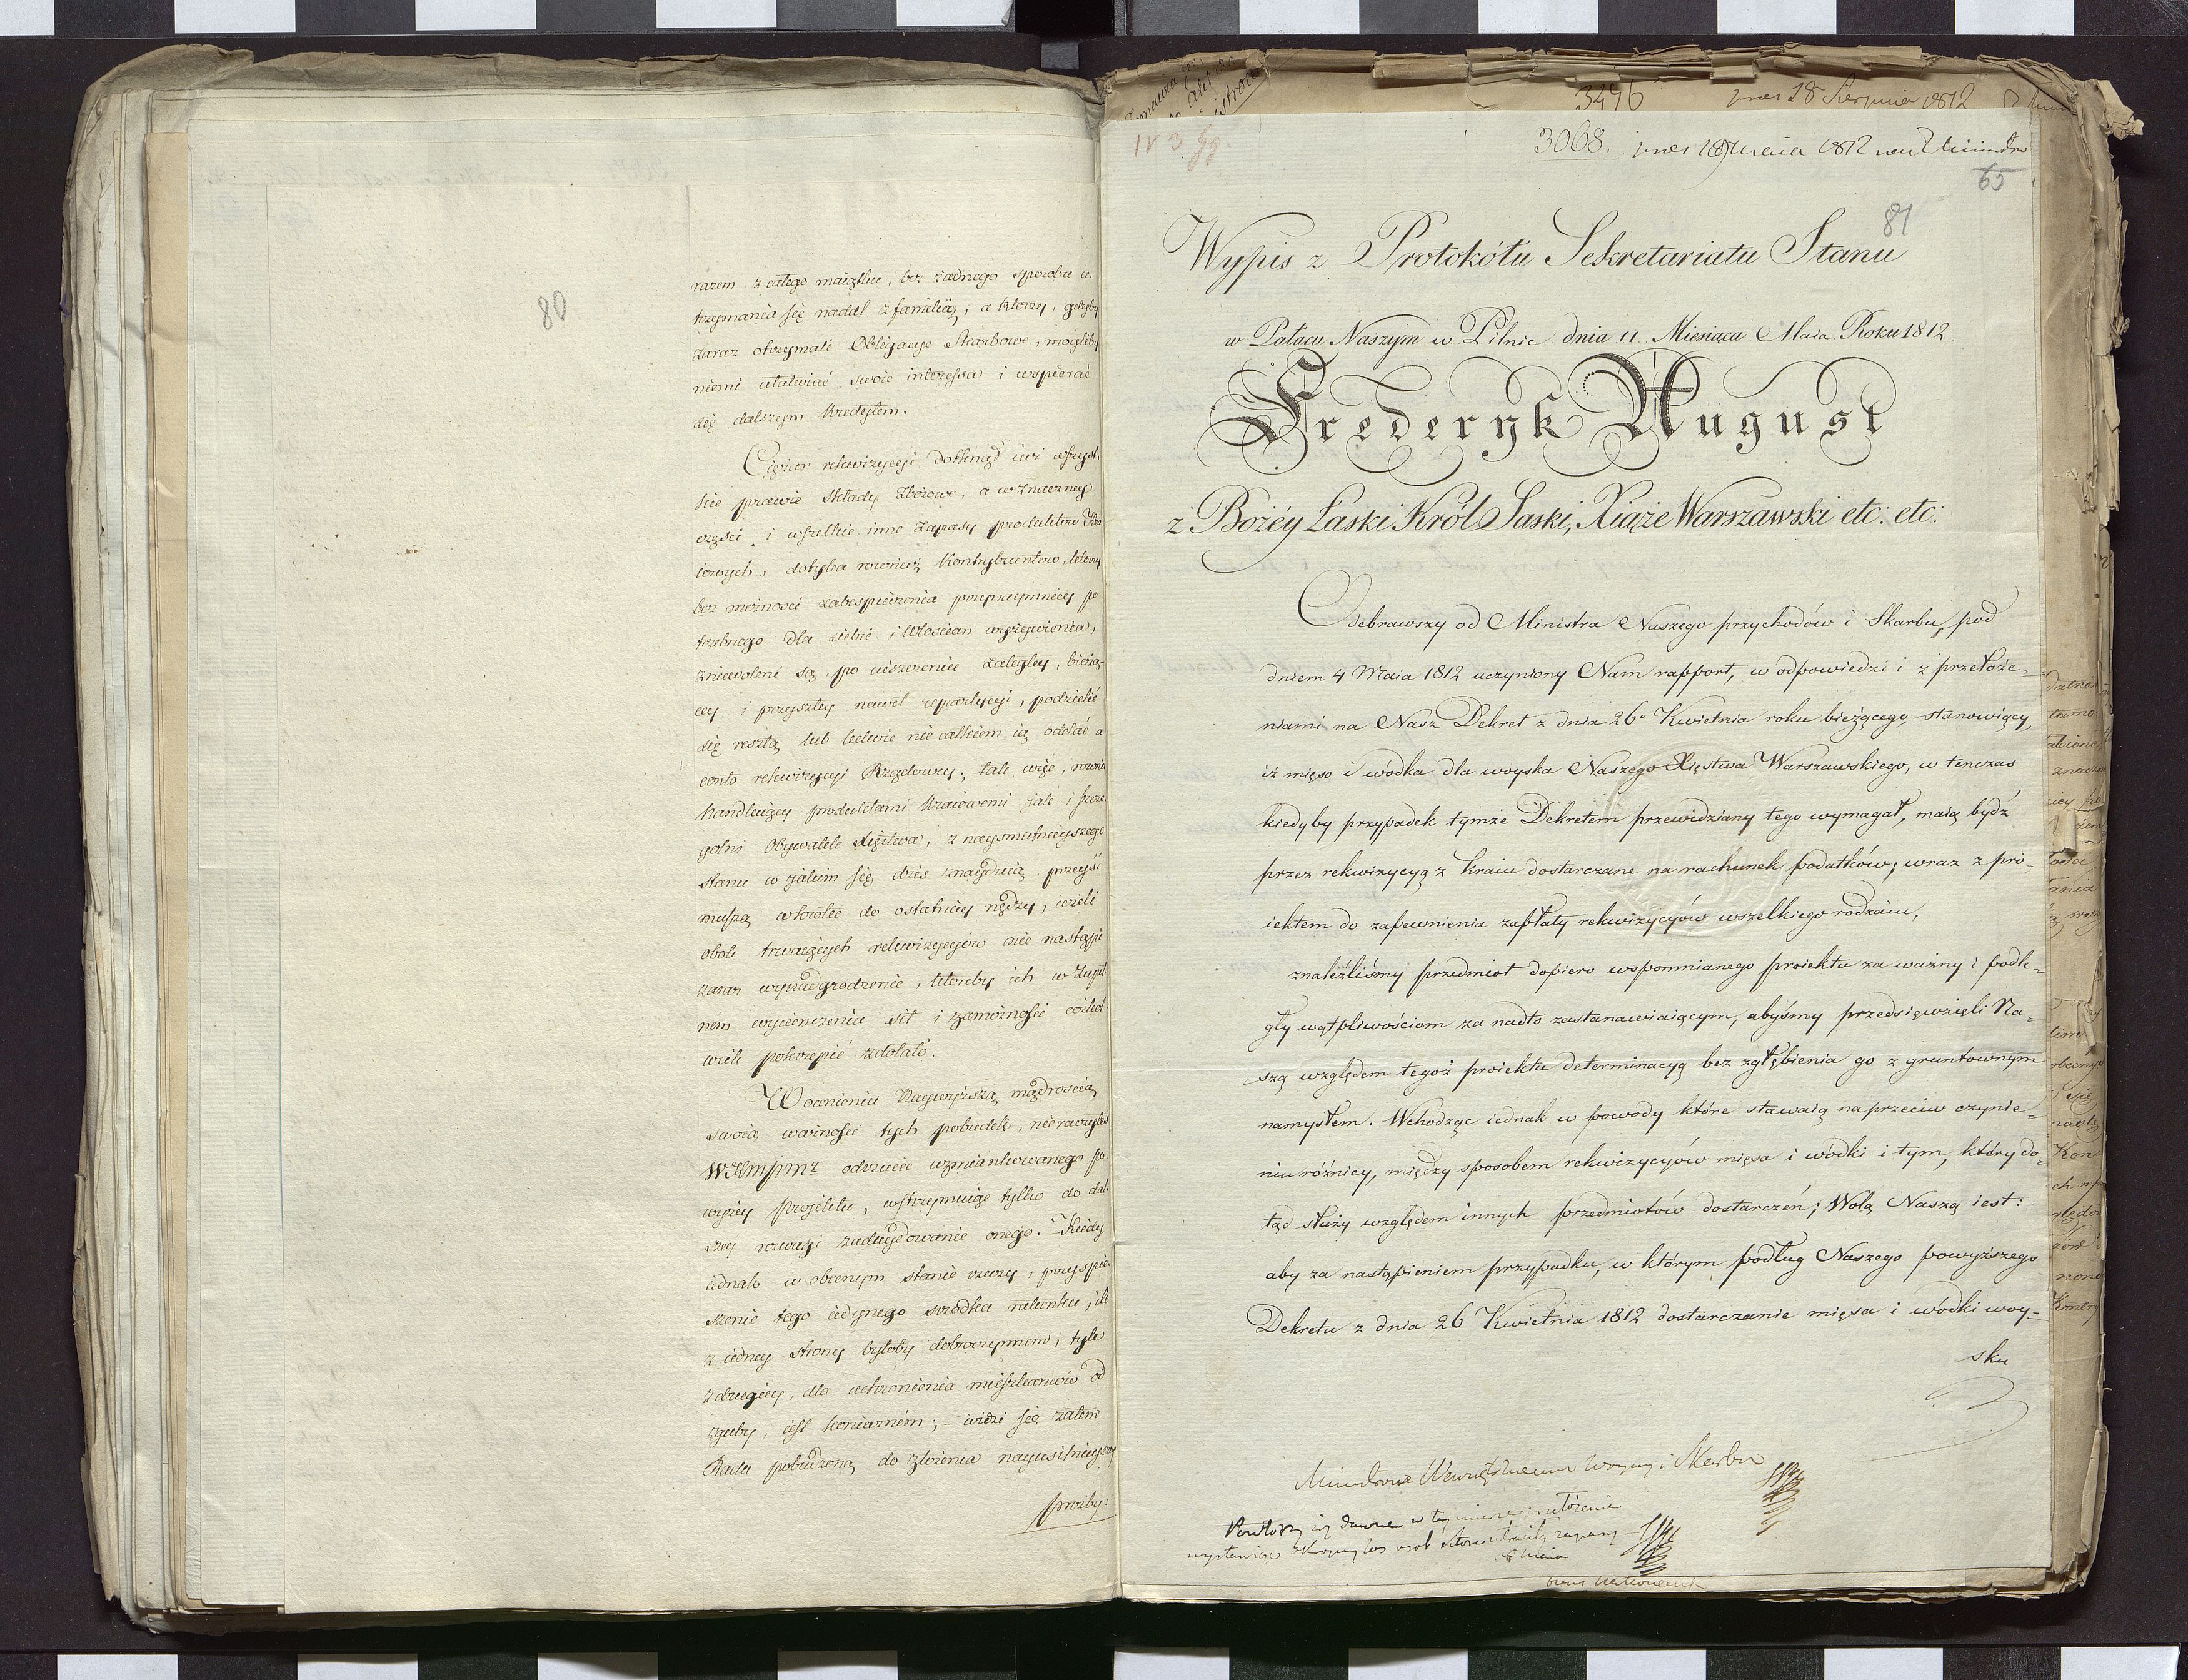 80
razem z całego maiątku, bez żadnego sposobu u-
trzymania się nadal z familią, a którzy, gdyby
zaraz otrzymali Obligacye Skarbowe, mogliby
niemi ułatwiać swoie interessa i wspierać
się dalszym kredytem.
Ciężar rekwizycyi dotknął iuż wszyst-
kie prawie składy zbożowe, a w znaczney
części i wszelkie inne zapasy produktów Kra
iowych, dotyka również Kontrybuentów, którzy
bez możności zabespieczenia przynaymniey po
trzebnego dla siebie i Włościan wyżywienia,
zniewoleni są, po uiszczeniu zaległey, bieżą-
cey i przyszłey nawet repartycyi, podzielić
się resztą lub ledwie nie całkiem ią oddać a
conto rekwizycyi Rządowey; tak więc, równie
handluiący produktami kraiowemi jak i szcze-
gólni Obywatele Xięstwa, z naysmutnieyszego
stanu w jakim się dziś znayduią, przeyść
muszą wkrótce do ostatniey nędzy, ieżeli
obok trwaiących rekwizycyiów nie nastąpi
zaraz wynadgrodzenie, któreby ich w zupeł
nem wycieńczeniu sił i zamożności cożkol
wiek pokrzepić zdołało.
W ocenieniu Naywyższą mądrością
swoią ważności tych pobudek, nie raczyłeś
WKMPMż odrzucić wzmiankowanego po-
wyżey Projektu, wstrzymuiąc tylko do dal-
szey rozwagi zadecydowanie onego. Kiedy
iednak w obecnym stanie rzeczy, przyspie-
szenie tego iedynego środka ratunku, ile
z iedney strony byłoby dobroczynnem, tyle
z drugiey, dla uchronienia mieszkańców od
zguby, iest koniecznem; – widzi się zatem
Rada pobudzoną do złożenia nayusilnieyszey
proźby:
3496 prez 18 Sierpnia 1812
IV 3 Gg.
3068. prez 19 Maia 1812
65
81
Wypis z Protokółu Sekretariatu Stanu
w Pałacu Naszym w Pilnic dnia 11 Miesiąca Maia Roku 1812.
Frederyk August
z Bożéy Łaski Król Saski, Xiąże Warszawski etc: etc:
Odebrawszy od Ministra Naszego przychodów i Skarbu, pod
dniem 4 Maia 1812 uczyniony Nam rapport, w odpowiedzi i z przełoże-
niami na Nasz Dekret z dnia 26º Kwietnia roku bieżącego, stanowiący,
iż mięso i wódka dla woyska Naszego Xięstwa Warszawskiego, w tenczas
kiedyby przypadek tymże Dekretem przewidziany tego wymagał, maią bydź
przez rekwizycyą z kraiu dostarczane na rachunek podatków; wraz z pro-
iektem do zapewnienia zapłaty rekwizycyów wszelkiego rodzaiu,
znaleźliśmy przedmiot dopiero wspomnianego proiektu za ważny i podle-
gły wątpliwościom za nadto zastanawiaiącym, abyśmy przedsięwzięli Na-
szą względem tegoż proiektu determinacyą bez zgłębienia go z gruntownym
namysłem. Wchodząc iednak w powody które stawaią naprzeciw czynie-
niu różnicy, między sposobem rekwizycyów mięsa i wódki i tym, który do-
tąd służy względem innych przedmiotów dostarczeń; Wolą Naszą iest:
aby za nastąpieniem przypadku, w którym podług Naszego powyższego
Dekretu z dnia 26 Kwietnia 1812 dostarczanie mięsa i wódki woy-
sku